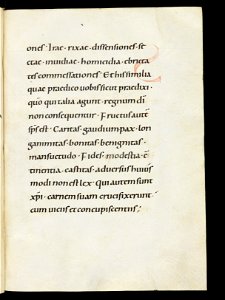 ones · Irae · rixae · dissensiones · se
ctae · inuidiae · homicidia · ebrieta
tes commessationes · Et his similia
quae praedico uobis sicut praedixi ·
quo qui talia agunt · regnum dī
non consequentur · Fructus aut̄
sp̄s est · Caritas · gaudium pax · lon
gamitas · bonitas · benignitas ·
mansuetudo · Fides · modestia · c̄
tinentia · castitas · aduersus huius
modi non est lex · qui autem sunt
xp̄i · carnem suam crucifixerunt
cum uiciis et concupiscentiis ·